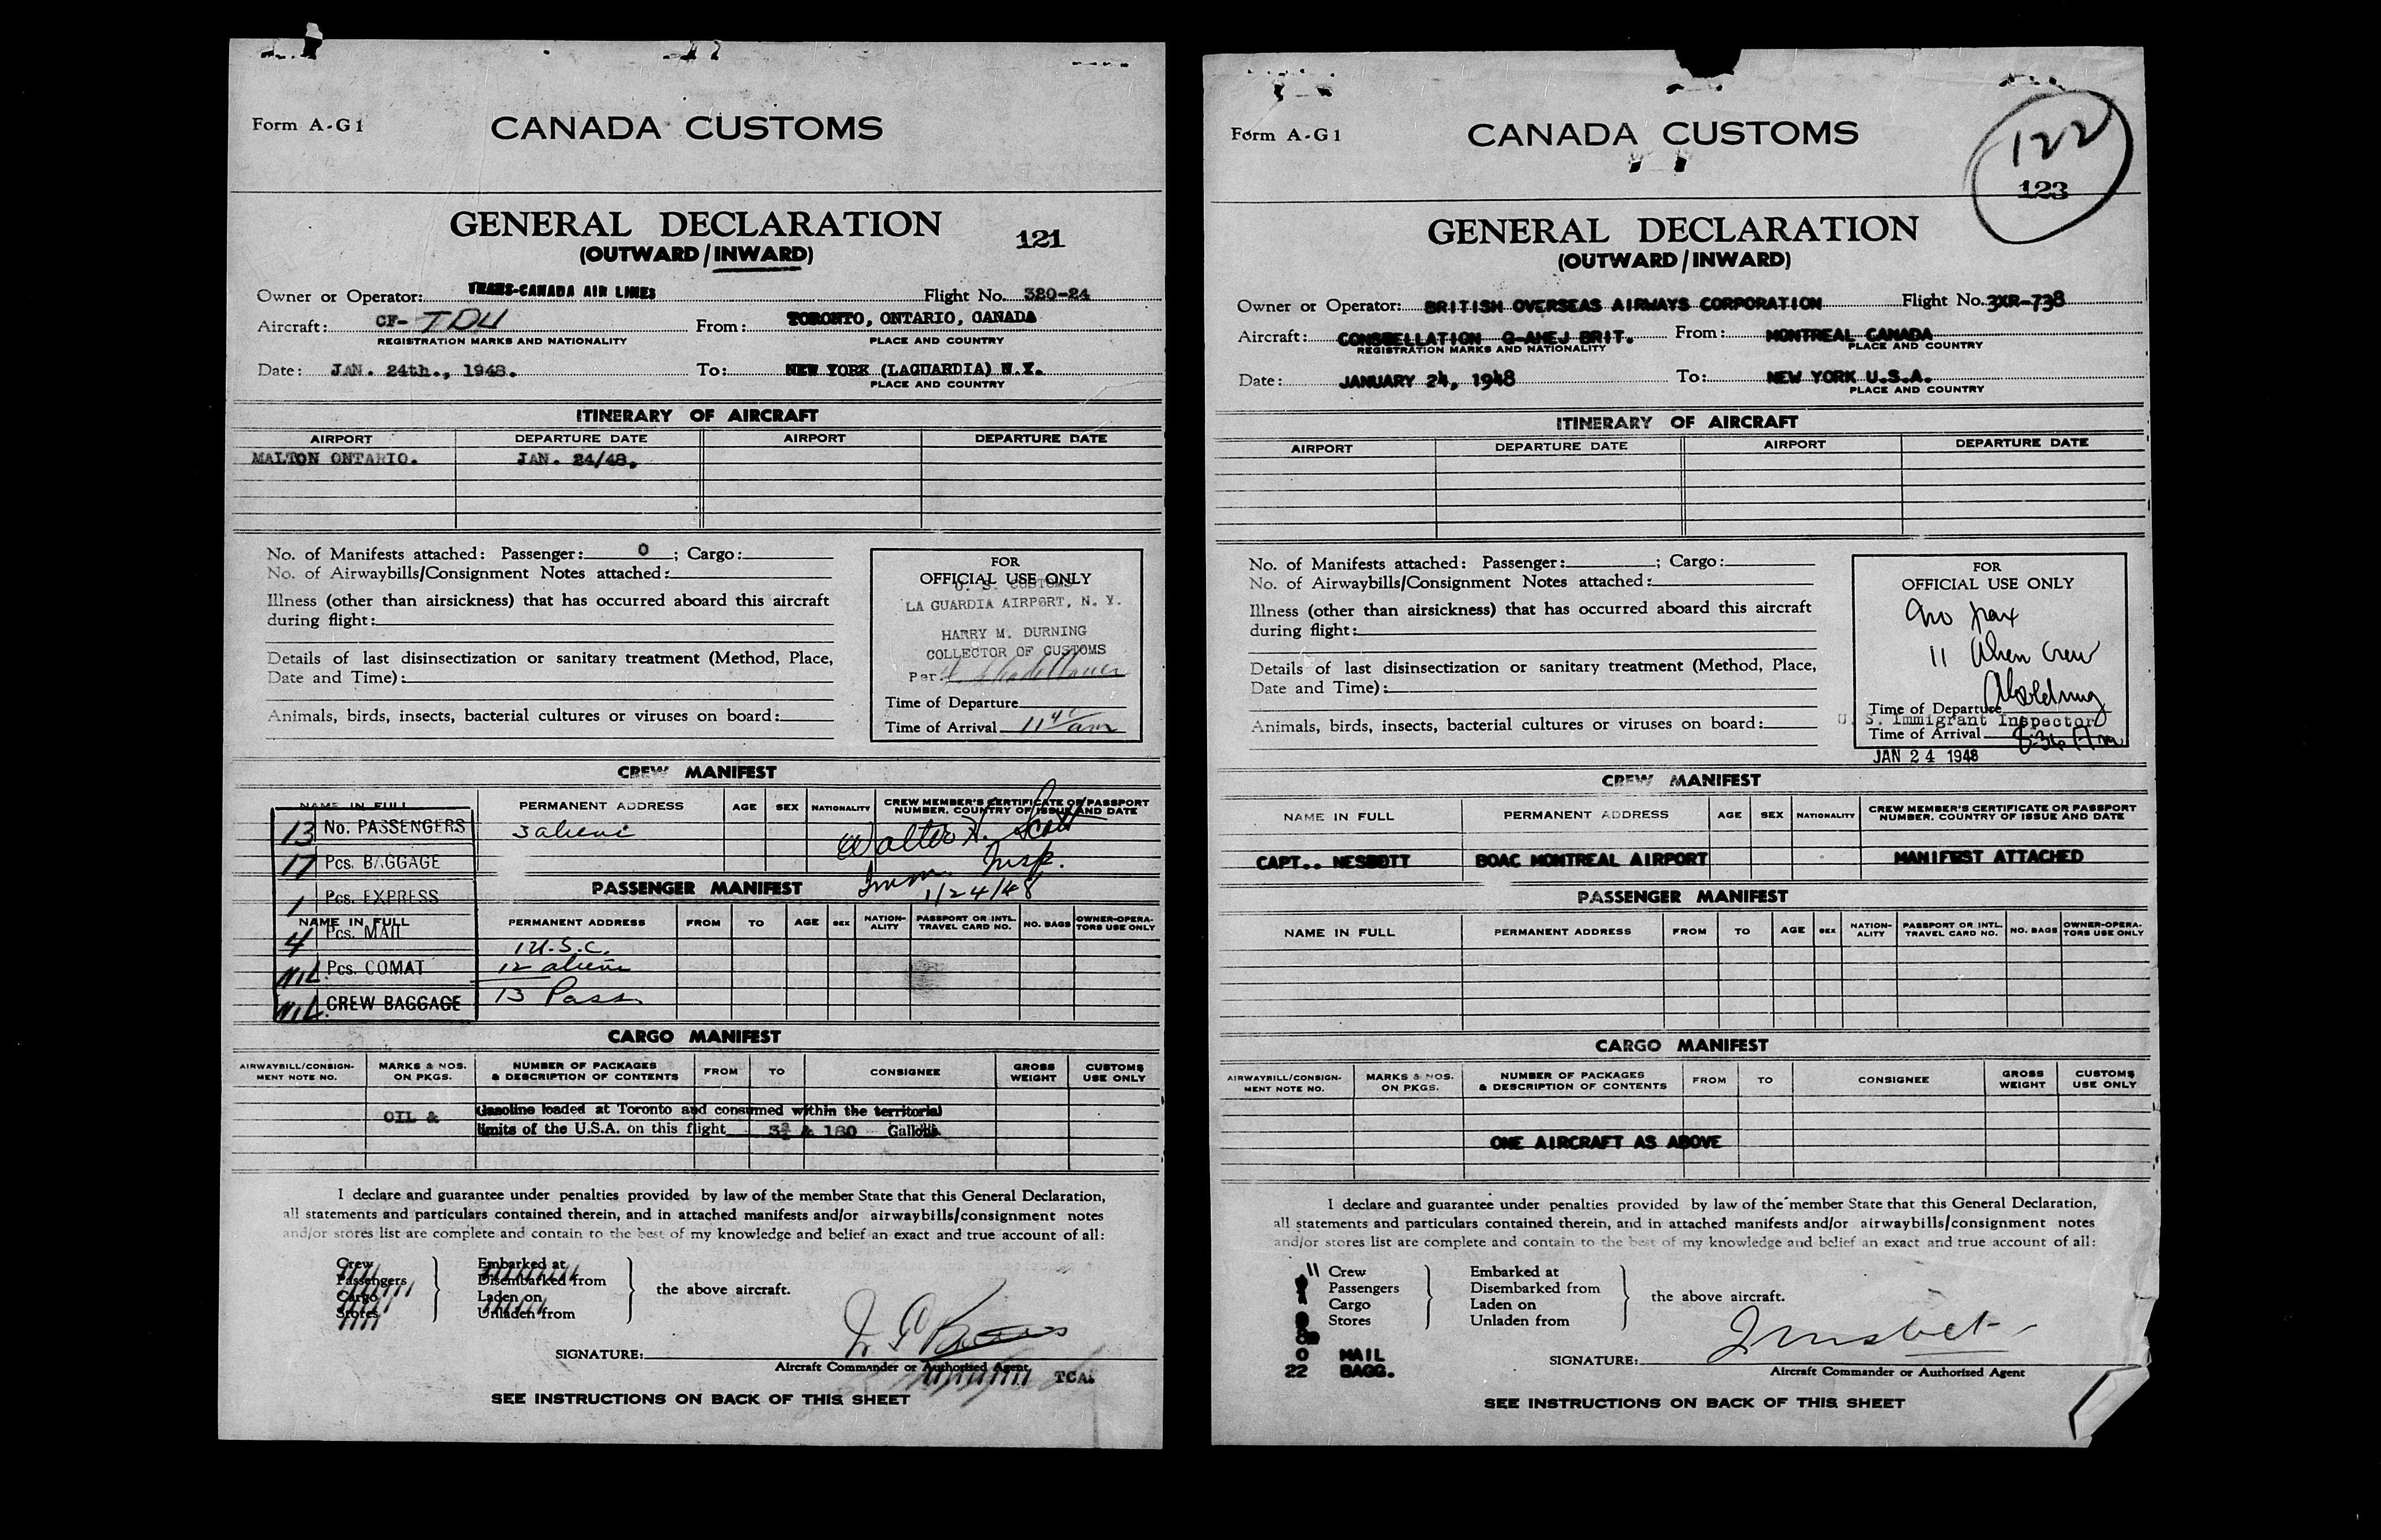 Form A-G1
CANADA CUSTOMS
GENERAL DECLARATION
121
(OUTWARD/INWARD)
Owner or Operator: TRANS-CANADA AIR LINES Flight No. 320-24
Aircraft: CF- TDU From: TORONTO, ONTARIO, CANADA
REGISTRATION MARKS AND NATIONALITY PLACE AND COUNTRY
Date: JAN. 24th., 1948. To: NEW YORK (LAGUARDIA) N.Y.
PLACE AND COUNTRY
ITINERARY OF AIRCRAFT
AIRPORT DEPARTURE DATE AIRPORT DEPARTURE DATE
MALTON ONTARIO. JAN. 24/48.
No. of Manifests attached: Passenger: 0 ; Cargo:
No. of Airwaybills/Consignment Notes attached:
Illness (other than airsickness) that has occurred aboard this aircraft
during flight:
Details of last disinsectization or sanitary treatment (Method, Place,
Date and Time):
Animals, birds, insects, bacterial cultures or viruses on board:
FOR
OFFICIAL USE ONLY
U. S. CUSTOMS
LA GUARDIA AIRPORT, N. Y.
HARRY M. DURNING
COLLECTOR OF CUSTOMS
Per.
Time of Departure
Time of Arrival 11 40 am
CREW MANIFEST
NAME IN FULL PERMANENT ADDRESS AGE SEX NATIONALITY CREW MEMBER'S CERTIFICATE OR PASSPORT
NUMBER, COUNTRY OF ISSUE AND DATE
13 No. PASSENGERS 3 aliens Walter H. Scott
17 Pcs. BAGGAGE Imm. Insp.
1/24/48
PASSENGER MANIFEST
1 Pcs. EXPRESS
NAME IN FULL PERMANENT ADDRESS FROM TO AGE SEX NATION-ALITY PASSPORT OR INTL. TRAVEL CARD NO. NO. BAGS OWNER-OPERA-TORS USE ONLY
4 Pcs. MAIL 1 U.S.C.
NIL Pcs. COMAT 12 aliens
NIL CREW BAGGAGE 13 Pass.
CARGO MANIFEST
AIRWAYBILL/CONSIGN-MENT NOTE NO. MARKS & NOS. ON PKGS. NUMBER OF PACKAGES & DESCRIPTION OF CONTENTS FROM TO CONSIGNEE GROSS WEIGHT CUSTOMS USE ONLY
OIL & Gasoline loaded at Toronto and consumed within the territorial
limits of the U.S.A. on this flight & 180 Gallons.
I declare and guarantee under penalties provided by law of the member State that this General Declaration,
all statements and particulars contained therein, and in attached manifests and/or airwaybills/consignment notes
and/or stores list are complete and contain to the best of my knowledge and belief an exact and true account of all:
Crew Embarked at
Passengers Disembarked from
Cargo Laden on the above aircraft.
Stores Unladen from
SIGNATURE:
Aircraft Commander or Authorized Agent TCA.
SEE INSTRUCTIONS ON BACK OF THIS SHEET
Form A-G1
CANADA CUSTOMS
122
123
GENERAL DECLARATION
(OUTWARD/INWARD)
Owner or Operator: BRITISH OVERSEAS AIRWAYS CORPORATION Flight No. 3XR-738
Aircraft: CONSTELLATION G-AHEJ BRIT. From: MONTREAL CANADA
REGISTRATION MARKS AND NATIONALITY PLACE AND COUNTRY
Date: JANUARY 24, 1948 To: NEW YORK U.S.A.
PLACE AND COUNTRY
ITINERARY OF AIRCRAFT
AIRPORT DEPARTURE DATE AIRPORT DEPARTURE DATE
No. of Manifests attached: Passenger: ; Cargo:
No. of Airwaybills/Consignment Notes attached:
Illness (other than airsickness) that has occurred aboard this aircraft
during flight:
Details of last disinsectization or sanitary treatment (Method, Place,
Date and Time):
Animals, birds, insects, bacterial cultures or viruses on board:
FOR
OFFICIAL USE ONLY
no pax
11 Alien Crew
Time of Departure
U. S. Immigrant Inspector
Time of Arrival 8:36 Am
JAN 24 1948
CREW MANIFEST
NAME IN FULL PERMANENT ADDRESS AGE SEX NATIONALITY CREW MEMBER'S CERTIFICATE OR PASSPORT
NUMBER, COUNTRY OF ISSUE AND DATE
CAPT.. NESBITT BOAC MONTREAL AIRPORT MANIFEST ATTACHED
PASSENGER MANIFEST
NAME IN FULL PERMANENT ADDRESS FROM TO AGE SEX NATION-ALITY PASSPORT OR INTL. TRAVEL CARD NO. NO. BAGS OWNER-OPERA-TORS USE ONLY
CARGO MANIFEST
AIRWAYBILL/CONSIGN-MENT NOTE NO. MARKS & NOS. ON PKGS. NUMBER OF PACKAGES & DESCRIPTION OF CONTENTS FROM TO CONSIGNEE GROSS WEIGHT CUSTOMS USE ONLY
ONE AIRCRAFT AS ABOVE
I declare and guarantee under penalties provided by law of the member State that this General Declaration,
all statements and particulars contained therein, and in attached manifests and/or airwaybills/consignment notes
and/or stores list are complete and contain to the best of my knowledge and belief an exact and true account of all:
11 Crew Embarked at
Passengers Disembarked from
Cargo Laden on the above aircraft.
Stores Unladen from
0 MAIL
22 BAGG.
SIGNATURE:
Aircraft Commander or Authorized Agent
SEE INSTRUCTIONS ON BACK OF THIS SHEET